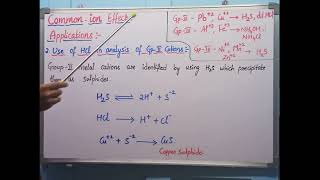 Common-ion Effect
Applications:-
2. Use of Hcl in analysis of Gp-II Cations:-
Group-II metal cations are identified by using H₂S which precipitate
them as sulphides.
H₂S ⇌ 2H⁺ + S⁻²
HCl → H⁺ + Cl⁻
Cu⁺² + S⁻² → CuS
Copper Sulphide
Gp-II - Pb⁺², Cu⁺² → H₂S, dil
Gp-III - Al⁺³, Fe⁺³ → NH₄OH
NH₄Cl
Gp-IV - Ni⁺², Mn⁺² → H₂S
Zn⁺²